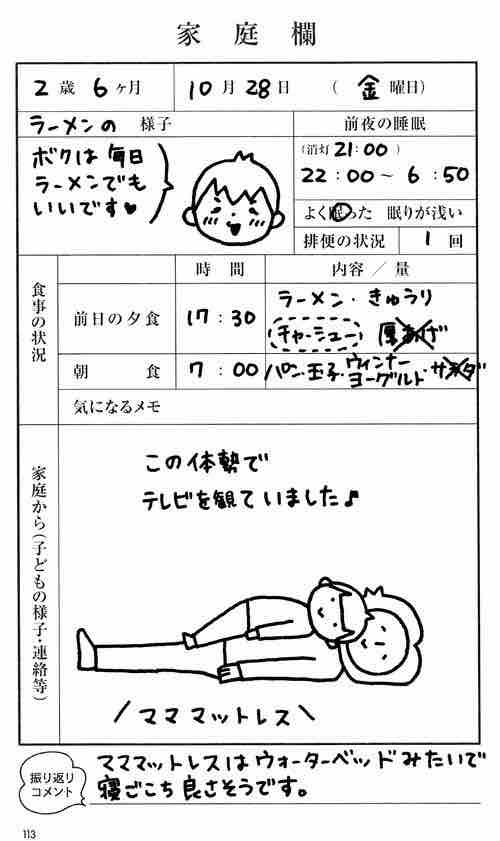 家庭欄
2歳 6ヶ月
10月 28日 (金曜日)
ラーメンの 様子
ボクは毎日
ラーメンでも
いいです♥
前夜の睡眠
(消灯 21:00)
22:00〜6:50
よく眠った 眠りが浅い
排便の状況 1回
食事の状況
時間
内容/量
前日の夕食
17:30
ラーメン・きゅうり
チャーシュー 厚あげ
朝食
7:00
パン・玉子・ウィンナー
ヨーグルト・サラダ
気になるメモ
家庭から(子どもの様子・連絡等)
この体勢で
テレビを観ていました♪
\ママ マットレス/
振り返り
コメント
マママットレスはウォーターベッドみたいで
寝ごこち良さそうです。
113